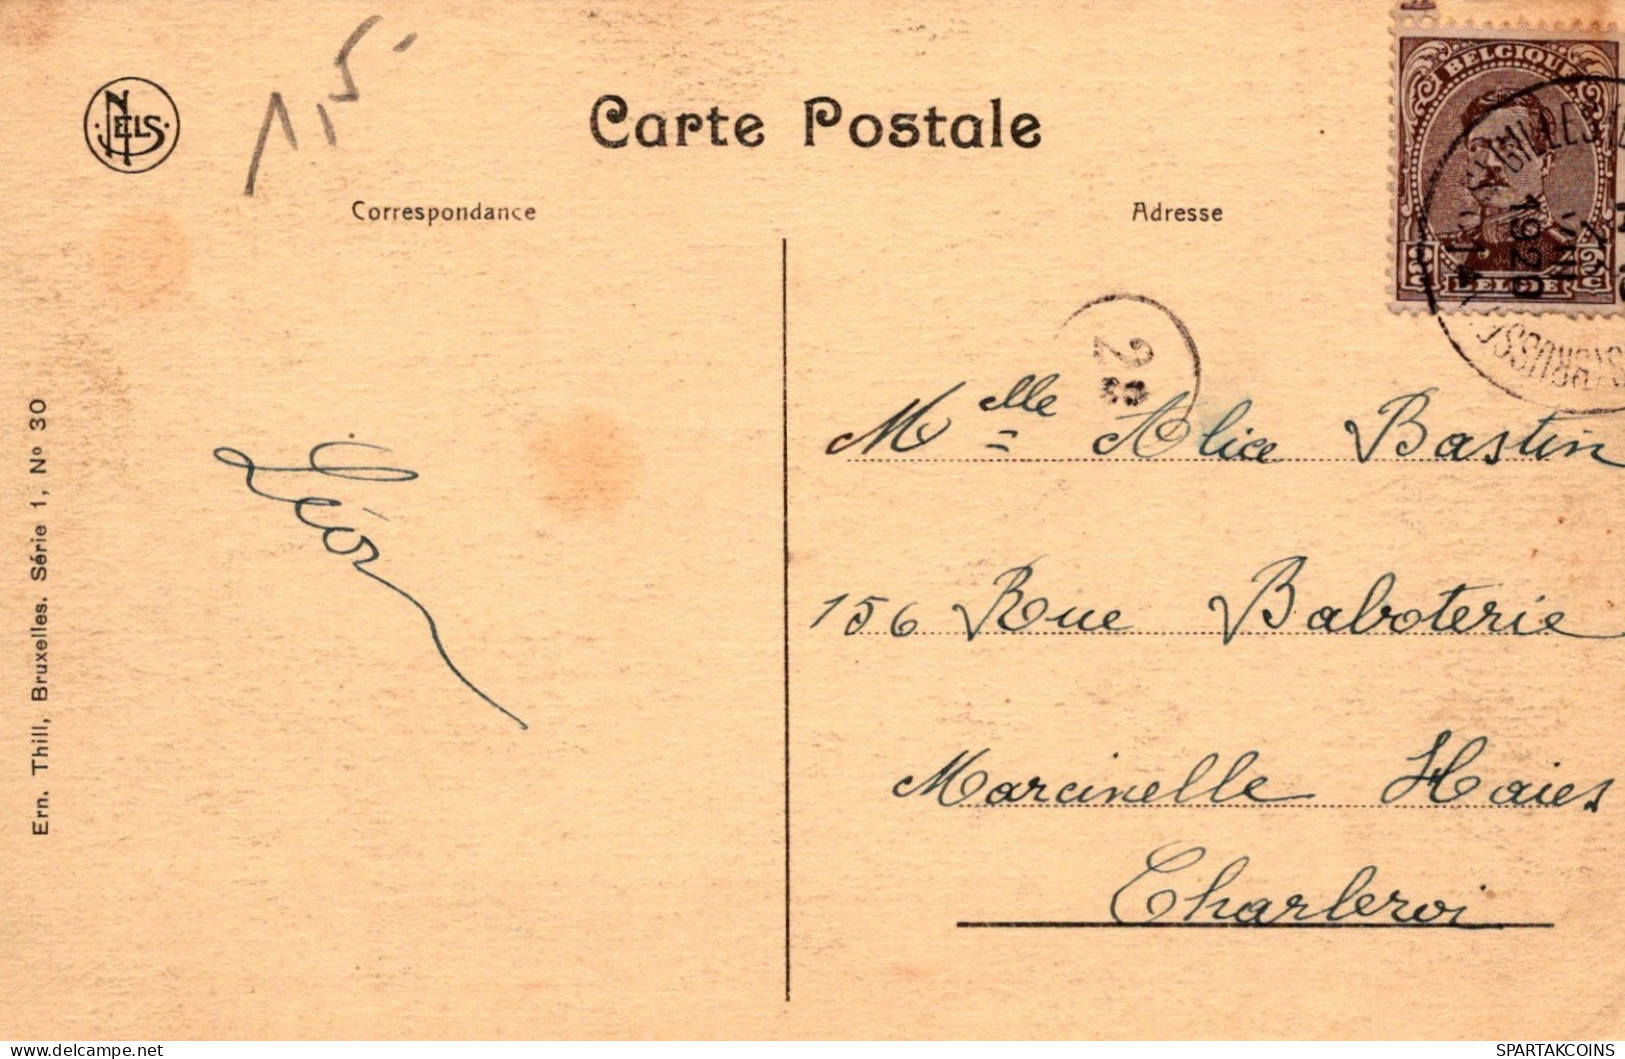 NELS
1,5
Carte Postale
Correspondance
Adresse
BELGIQUE
BELGIE
1920
Léon
Mlle Alice Bastin
156 Rue Baboterie
Marcinelle Haies
Charleroi
Ern. Thill, Bruxelles. Série 1, Nº 30
SPARTAKCOINS
delcampe.net